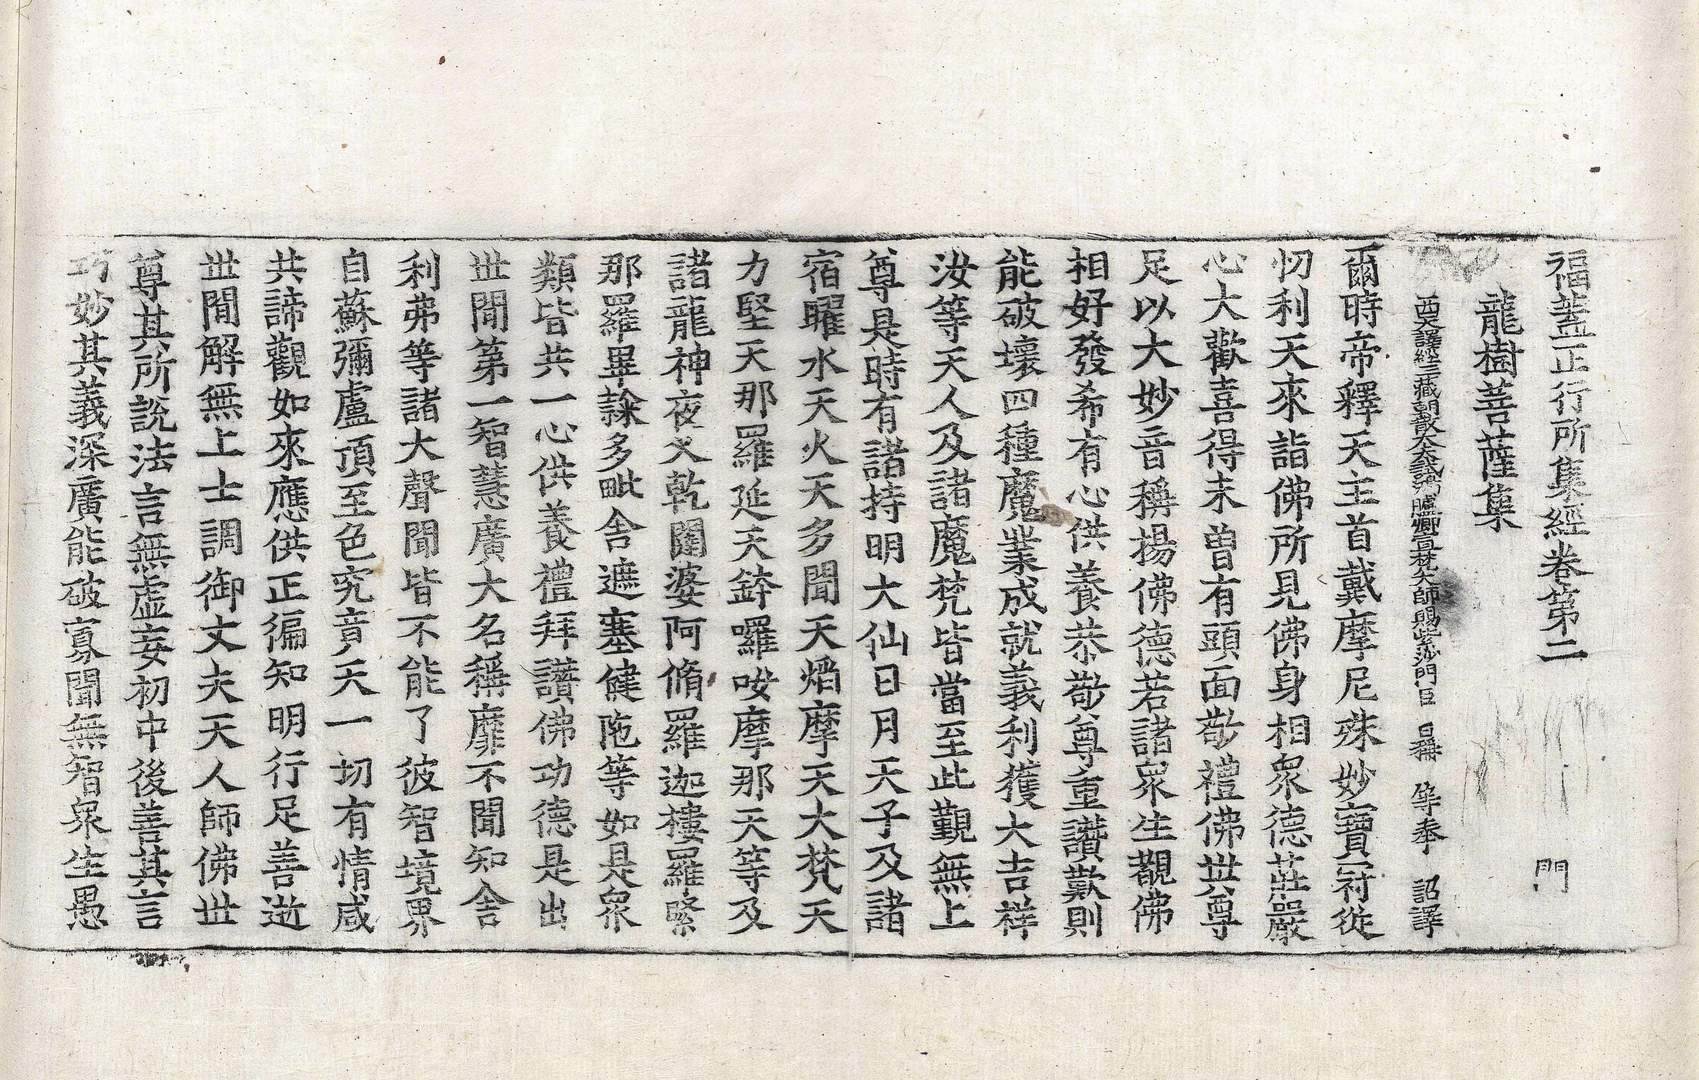 福蓋正行所集經卷第二 門
龍樹菩薩集
西天譯經三藏朝散大夫試鴻臚卿宣梵大師賜紫沙門臣 日稱 等奉 詔譯
爾時帝釋天主首戴摩尼殊妙寶冠從
忉利天來詣佛所見佛身相衆德莊嚴
心大歡喜得未曾有頭面敬禮佛世尊
足以大妙音稱揚佛德若諸衆生覩佛
相好發希有心供養恭敬尊重讚歎則
能破壞四種魔業成就義利獲大吉祥
汝等天人及諸魔梵皆當至此觀無上
尊是時有諸持明大仙日月天子及諸
宿曜水天火天多聞天焰摩天大梵天
力堅天那羅延天鉾囉㖀摩那天等及
諸龍神夜叉乾闥婆阿脩羅迦樓羅緊
那羅畢隸多毗舍遮塞健陁等如是衆
類皆共一心供養禮拜讚佛功德是出
世間第一智慧廣大名稱靡不聞知舍
利弗等諸大聲聞皆不能了彼智境界
自蘇彌盧頂至色究竟天一切有情咸
共諦觀如來應供正徧知明行足善逝
世間解無上士調御丈夫天人師佛世
尊其所說法言無虛妄初中後善其言
巧妙其義深廣能破寡聞無智衆生愚